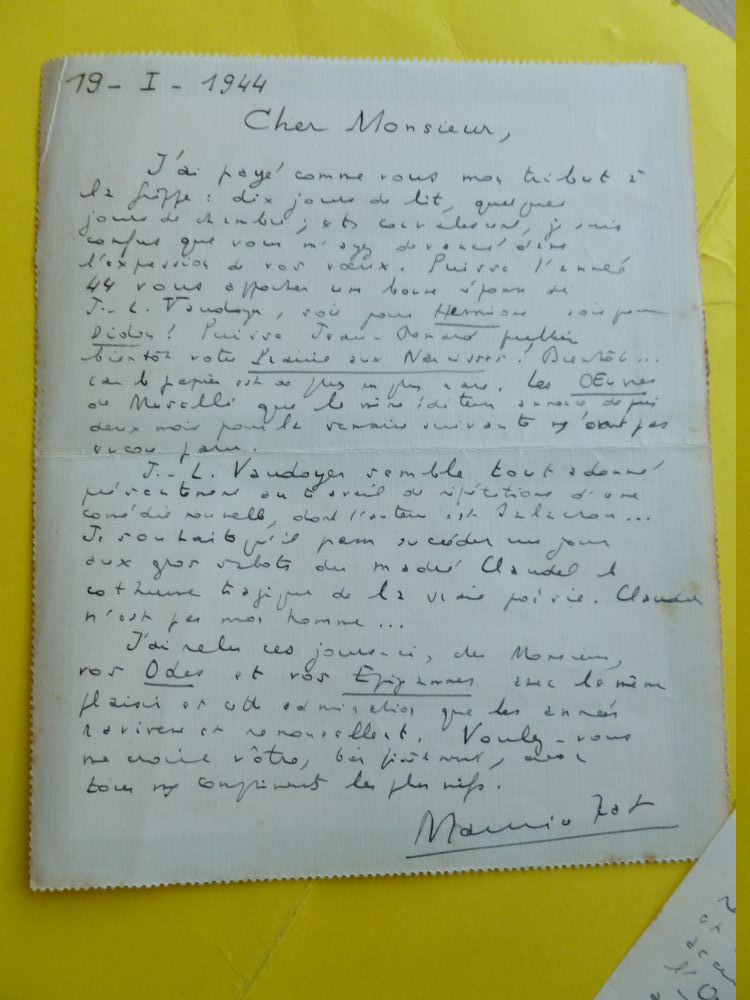 19 - I - 1944
Cher Monsieur,
J'ai payé comme vous mon tribut à
la grippe : dix jours de lit, quelques
jours de chambre ; et convalescent, je suis
confus que vous m'ayez devancé dans
l'expression de vos vœux. Puisse l'année
44 vous apporter une bonne réponse de
J.-L. Vaudoyer, soit pour Hermione soit pour
Didon ! Puisse Jean-Renard publier
bientôt votre Prairie aux Narcisses ! Bientôt...
car le papier est de plus en plus rare. Les Œuvres
de Muselli que le même éditeur annonce depuis
deux mois pour la semaine suivante n'ont pas
encore paru.
J.-L. Vaudoyer semble tout adonné
présentement au travail de répétitions d'une
comédie nouvelle, dont l'auteur est Salacrou...
Je souhaite qu'il fasse succéder un jour
aux gros sabots du madré Claudel le
cothurne tragique de la vraie poésie. Claudel
n'est pas mon homme...
J'ai relu ces jours-ci, cher Monsieur,
vos Odes et vos Epigrammes avec le même
plaisir et cette admiration que les années
ravivent et renouvellent. Voulez-vous
me croire vôtre, bien fidèlement, avec
tous mes compliments les plus vifs.